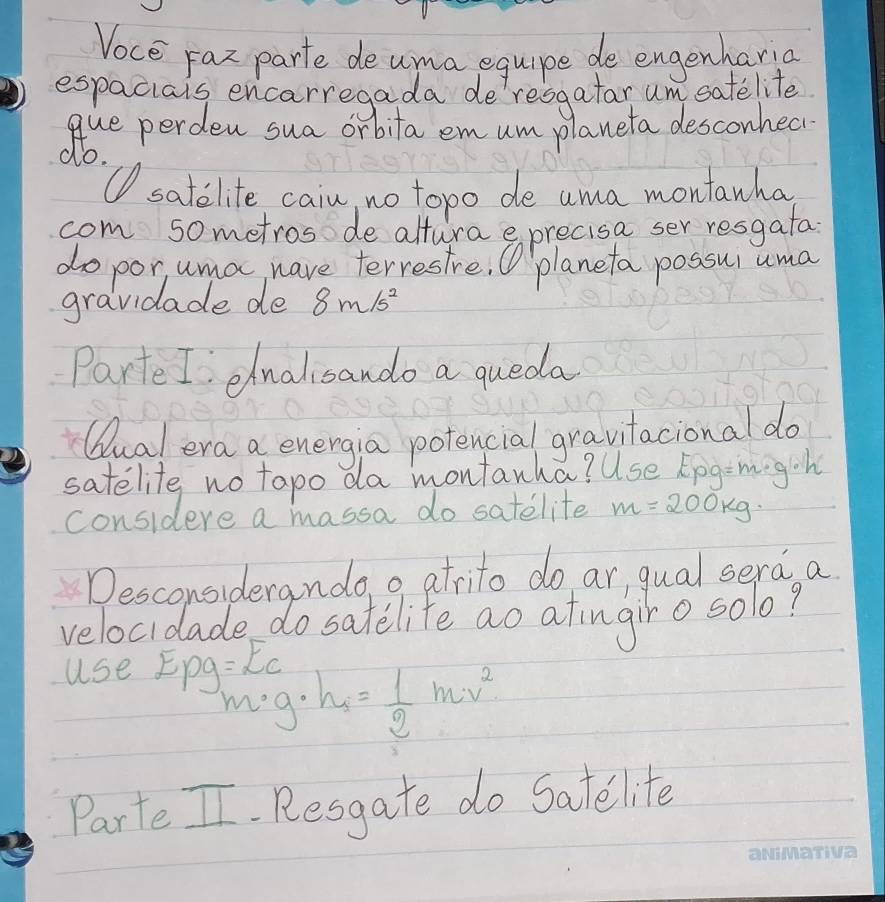 Você faz parte de uma equipe de engenharia
espaciais encarregada de resgatar um satélite
que perdeu sua órbita em um planeta desconheci-
do.
O satélite caiu, no topo de uma montanha
com 50 metros de altura e precisa ser resgata-
do por uma nave terrestre. O planeta possui uma
gravidade de 8 m/s²
Parte I: Analisando a queda.
*Qual era a energia potencial gravitacional do
satélite no topo da montanha? Use Epg=m·g·h
considere a massa do satélite m = 200kg.
*Desconsiderando o atrito do ar, qual será a
velocidade do satélite ao atingir o solo?
Use Epg = Ec
m·g·h = 1/2 m·v²
Parte II - Resgate do Satélite
aNiMaTiva